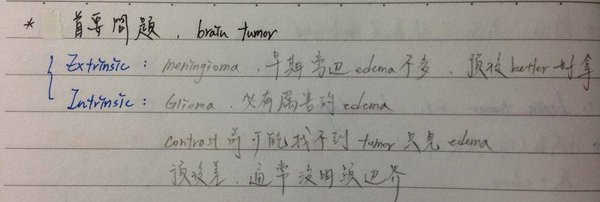 * 首要問題. brain tumor
Extrinsic: meningioma. 早期旁邊 edema 不多. 預後 better 好拿
Intrinsic: Glioma. 必有厲害的 edema
contrast 前可能找不到 tumor 只見 edema
預後差. 通常沒明顯邊界